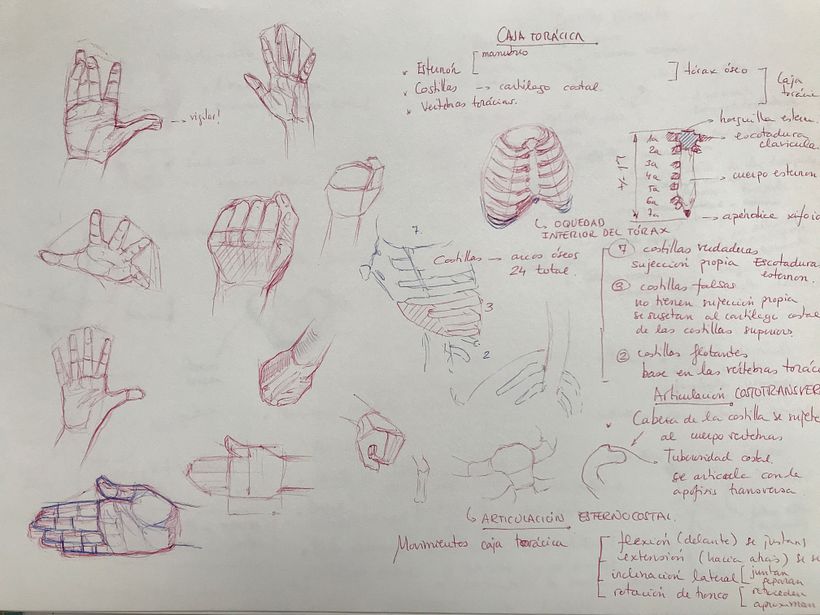 → vigilar!
CAJA TORÁCICA
manubrio
* Esternón
* Costillas → cartílago costal
* Vertebras torácicas.
tórax óseo
Caja
horquilla estern
escotadura
clavicula
1a
2a
3a
4a
5a
6a
7a
cuerpo esternon
apéndice xifoi
OQUEDAD
INTERIOR DEL TÓRAX
7.
3
2
Costillas → arcos óseos
24 total.
⑦ costillas verdaderas
sujección propia Escotadura
esternon.
③ costillas falsas
no tienen sujección propia
se sujetan al cartílago costal
de las costillas superiores.
② costillas flotantes
base en las vertebras torác
Articulación COSTOTRANSVER
* Cabeza de la costilla se sujeta
al cuerpo vertebras
Tuberosidad costal.
se articula con la
apofisis transversa
ARTICULACIÓN ESTERNOCOSTAL.
Movimientos caja torácica
flexión (delante) se juntan
extensión (hacia atrás) se s
inclinación lateral
juntan
separan
rotación de tronco
retroceden
aproximan